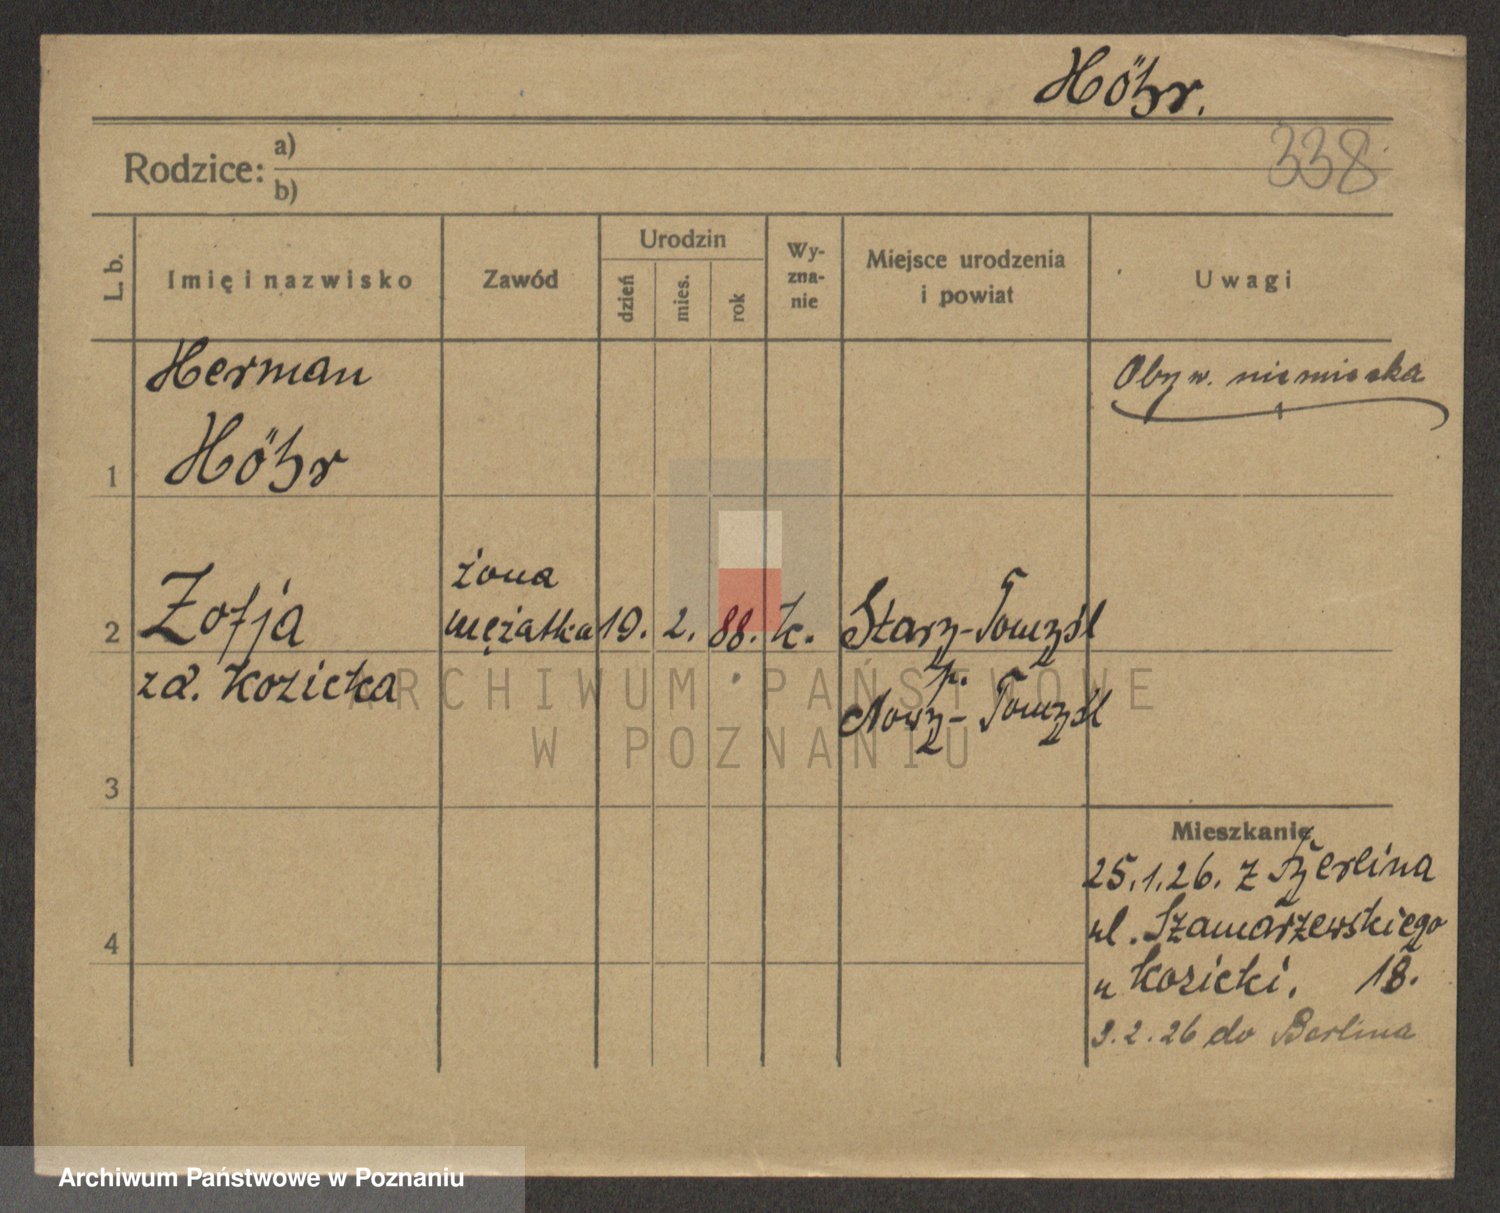 Höhr.
338
Rodzice: a)
b)
L. b.
Imię i nazwisko
Zawód
Urodzin
dzień
mies.
rok
Wy-
zna-
nie
Miejsce urodzenia
i powiat
Uwagi
Herman
Obyw. niemiecka
1 Höhr
żona
2 Zofja mężatka 19. 2. 88. k. Stary-Tomyśl
zd. Kozicka p.
Nowy-Tomyśl
ARCHIWUM PAŃSTWOWE
W POZNANIU
3
Mieszkanie
25.1.26. z Berlina
4 ul. Szamarzewskiego
u Kozicki. 18.
9.2.26 do Berlina
Archiwum Państwowe w Poznaniu